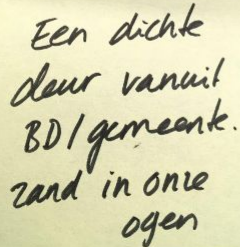 Een dichte
deur vanuit
BD/gemeente.
zand in onze
ogen